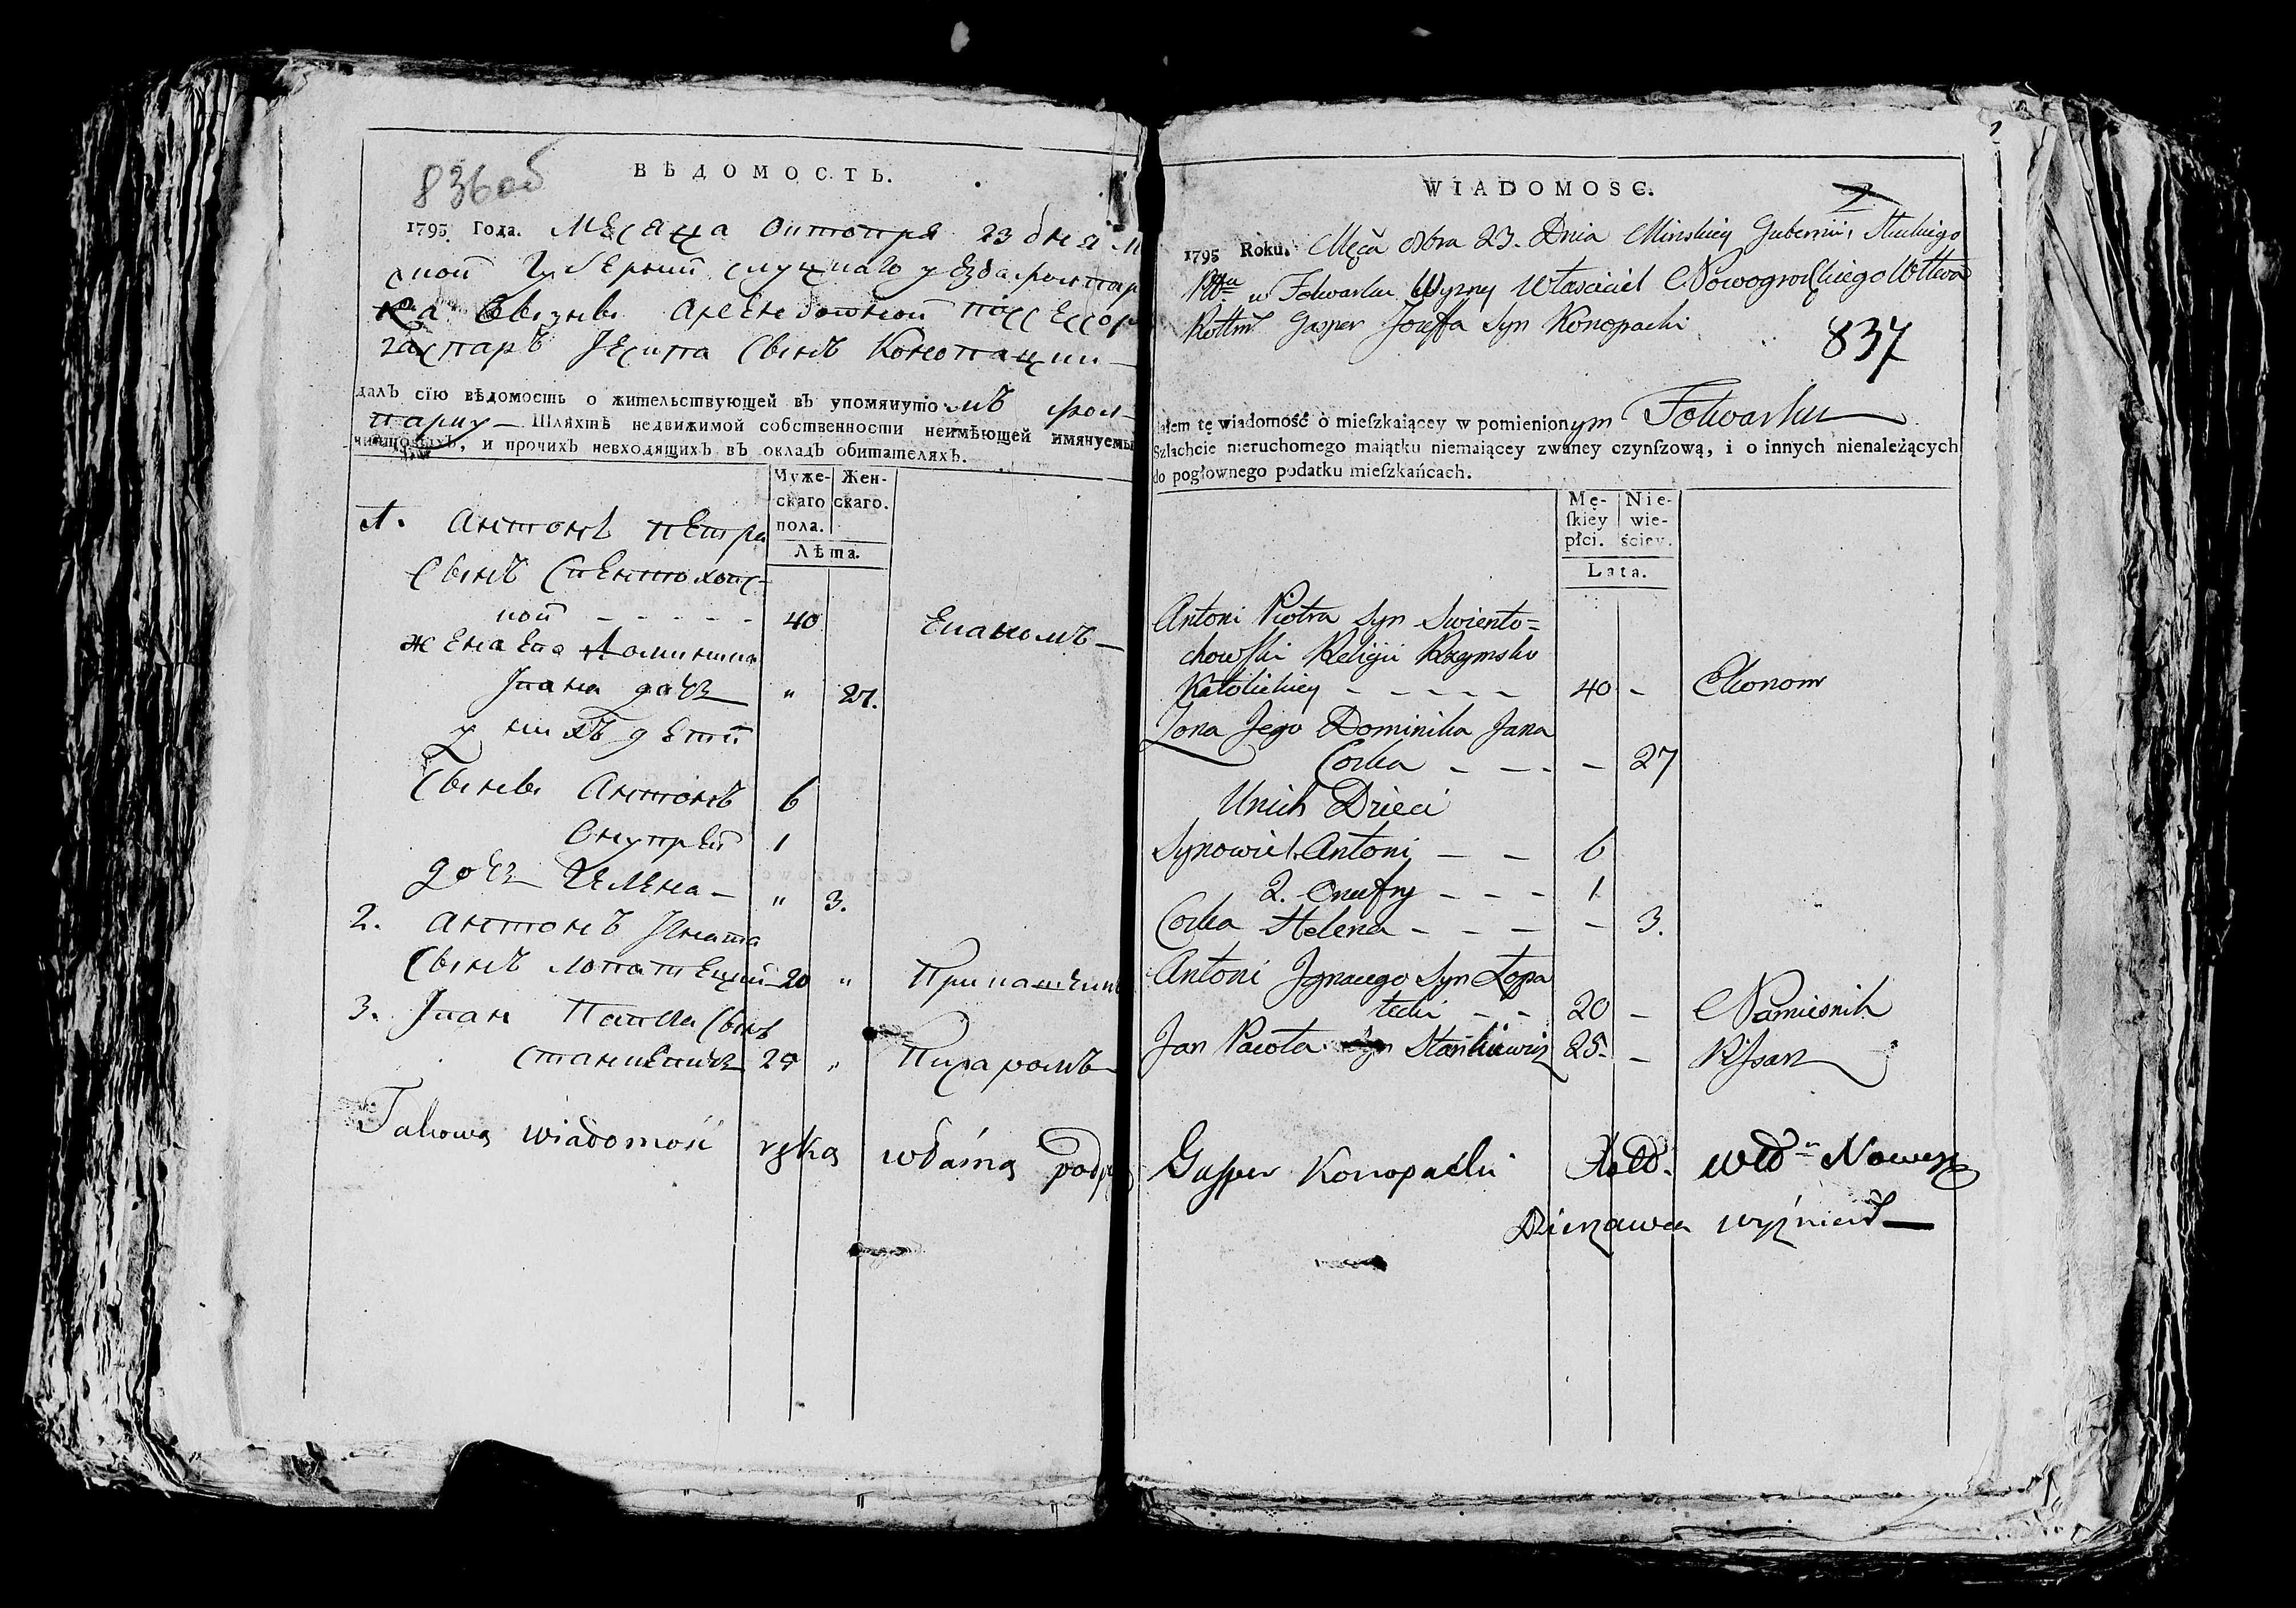 836 об
ВѢДОМОСТЬ.
1795. Года. Месяца Октопря 23 дня М
ской Губернии слуцкаго уезда фольвар
ка Вызны Арендовной поссессор
гаспаръ Іесипа сынъ Конопацки
далъ сїю вѣдомость о жительствующей въ упомянутомъ фол
варку — Шляхтѣ недвижимой собственности неимѣющей имянуемы
чиншовыхъ, и прочихъ невходящихъ въ окладъ обитателяхъ.
Муже- Жен-
скаго скаго.
пола.
Лѣта.
1. Антонъ петра
сынъ свентохов-
ский - - - - - 40 Економъ —
жена ево Доминика
Івана дочь " 27.
у нихъ дети
сыны Антонъ 6
Онупрей 1
дочь Гелена — " 3.
2. антонъ Ігната
сынъ лопатецки 20 "
3. Іван Павла сынъ
станкевичъ 25 " Писаромъ
Takową wiadomość ręką własną podp
WIADOMOSC.
1795 Roku. Mcą 8bra 23. Dnia Minskiey Gubernii Słuckiego
Pttu w Folwarku Wyzny Własciciel Nowogrodzkiego Wttwa
Rottm Gasper Jozeffa Syn Konopacki
837
ałem tę wiadomość o mieſzkaiącey w pomienionym Folwarku
Szlachcie nieruchomego maiątku niemaiącey zwaney czynſzową, i o innych nienależących
do pogłownego podatku mieſzkańcach.
Mę- Nie-
ſkiey wie-
płci. ściey.
Lata.
Antoni Piotra Syn Swiento=
chowſki Religii Rzymsko
Katolickiey - - - - - 40 - Ekonom
Zona Jego Dominika Jana
Corka - - - - 27
Unich Dzieci
Synowie 1. Antoni - - 6
2. Onufry - - - 1
Corka Helena - - - - 3.
Antoni Jgnacego Syn Łopa
tecki - - 20 - Namiesnik
Jan Pawła Syn Stankiewicz 25. - Piſsarz
Gasper Konopacki
Dzierzawca wyżnieńs